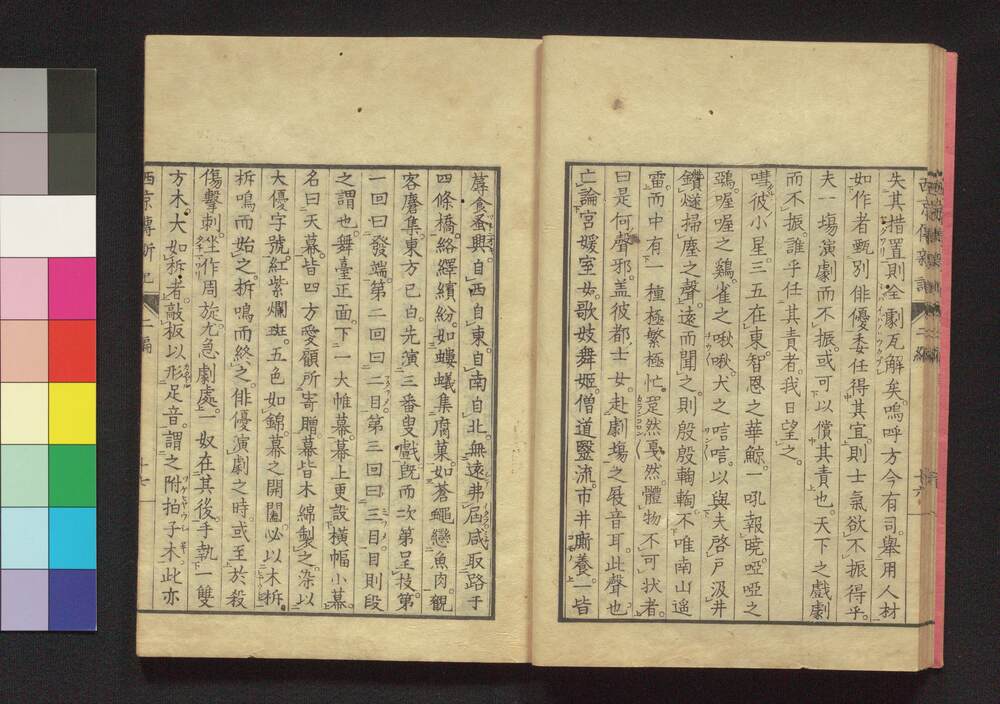 失其措置則全劇瓦解矣嗚呼方今有司舉用人材
如作者甄別俳優委任得其宜則士氣欲不振得乎
夫一場演劇而不振或可以償其責也天下之戲劇
而不振誰乎任其責者我日望之
嘒彼小星三五在東智恩之華鯨一吼報曉啞啞之
鵶喔喔之鷄雀之啾啾犬之喧喧以與夫啓戶汲井
鑽燧掃塵之聲遠而聞之則殷殷輷輷不唯南山遙
雷而中有一種極繁極忙跫然戛然體物不可狀者
曰是何聲邪盖彼都士女赴劇場之屐音耳此聲也
亡論宮媛室女歌妓舞姬僧道毉流市井廝養一皆
蓐食蚤興自西自東自南自北無遠弗屆咸取路于
四條橋絡繹繽紛如螻蟻集腐菓如蒼蠅戀魚肉觀
客麕集東方已白先演三番叟戲既而次第呈技第
一回曰發端第二回曰二目第三回曰三目目則段
之謂也舞臺正面下一大帷幕幕上更設橫幅小幕
名曰天幕皆四方愛顧所寄贈幕皆木綿製之染以
大優字號紅紫斕斑五色如錦幕之開闔必以木柝
柝鳴而始之柝鳴而終之俳優演劇之時或至於殺
傷擊刺坐作周旋尤急劇處一奴在其後手執一雙
方木大如柝者敲板以形足音謂之附拍子木此亦
西京傳新記 二編 十七